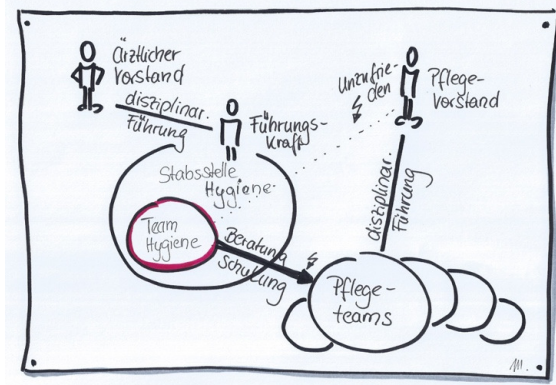 Ärztlicher
Vorstand
disziplinar.
Führung
Führungs-
kraft
Unzufrie-
den
Pflege-
vorstand
Stabsstelle
Hygiene
Team
Hygiene
Beratung
Schulung
disziplinar.
Führung
Pflege-
teams